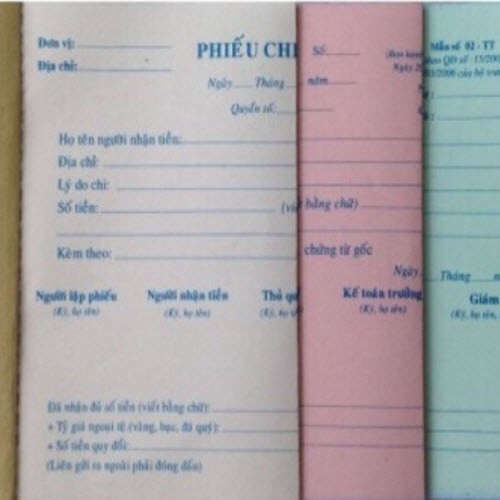 Đơn vị:
PHIẾU CHI
Số:
Mẫu số 02 - TT
Địa chỉ:
Ngày Tháng năm
Quyển số:
Họ tên người nhận tiền:
Địa chỉ:
Lý do chi:
Số tiền: (viết bằng chữ)
Kèm theo: chứng từ gốc
Ngày Tháng
Người lập phiếu Người nhận tiền Thủ qu Kế toán trưởng Giám
(Ký, họ tên) (Ký, họ tên) (Ký, họ t (Ký, họ tên) (Ký, họ tên,
Đã nhận đủ số tiền (viết bằng chữ):
+ Tỷ giá ngoại tệ (vàng, bạc, đá quý):
+ Số tiền quy đổi:
(Liên gửi ra ngoài phải đóng dấu)